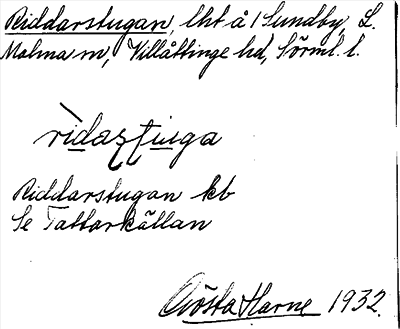 Riddarstugan, lht å 1 Sundby, L.
Malma sn, Villåttinge hd, Sörml. l.
Riddarstugan kb
Se Tattarkällan
Gösta Harne 1932.